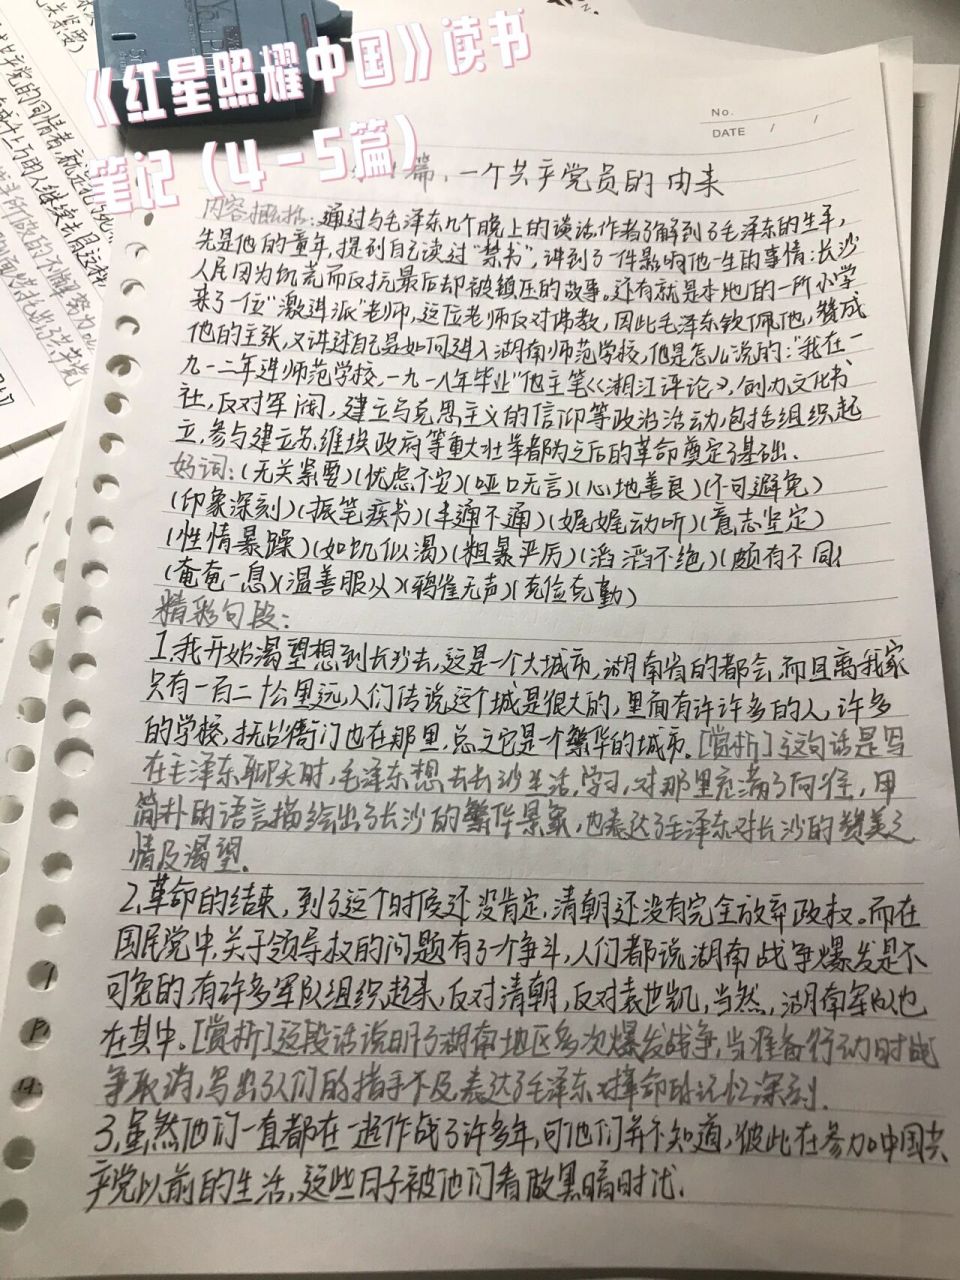 《红星照耀中国》读书
笔记（4-5篇）
No.
DATE / /
篇、一个共产党员的由来
内容概括：通过与毛泽东几个晚上的谈话,作者了解到了毛泽东的生平,
先是他的童年,提到自己读过"禁书",讲到了一件影响他一生的事情:长沙
人民因为饥荒而反抗最后却被镇压的故事。还有就是本地的一所小学
来了一位"激进派"老师,这位老师反对佛教,因此毛泽东钦佩他,赞成
他的主张,又讲述自己是如何进入湖南师范学校,他是怎么说的:"我在一
九一二年进师范学校,一九一八年毕业"他主笔《湘江评论》,创办文化书
社,反对军阀,建立马克思主义的信仰等政治活动,包括组织起
立,参与建立苏维埃政府等重大壮举都为之后的革命奠定了基础.
好词:(无关紧要)(忧虑不安)(哑口无言)(心地善良)(不可避免)
(印象深刻)(振笔疾书)(半通不通)(娓娓动听)(意志坚定)
(性情暴躁)(如饥似渴)(粗暴严厉)(滔滔不绝)(颇有不同)
(奄奄一息)(温善服从)(鸦雀无声)(克俭克勤)
精彩句段:
1.我开始渴望想到长沙去,这是一个大城市,湖南省的都会,而且离我家
只有一百二十公里远,人们传说这个城是很大的,里面有许许多多的人,许多
的学校,抚台衙门也在那里,总之它是一个繁华的城市.[赏析]这句话是写
在毛泽东聊天时,毛泽东想去长沙生活,学习,对那里充满了向往,用
简朴的语言描绘出了长沙的繁华景象,也表达了毛泽东对长沙的赞美之
情及渴望.
2.革命的结束,到了这个时候还没肯定,清朝还没有完全放弃政权。而在
国民党中,关于领导权的问题有了一个争斗,人们都说湖南战争爆发是不
可免的有许多军队组织起来,反对清朝,反对袁世凯,当然,湖南军队也
在其中。[赏析]这段话说明了湖南地区多次爆发战争,当准备行动时战
争取消,写出了人们的措手不及,表达了毛泽东对革命的记忆深刻.
3.虽然他们一直都在一起作战了许多年,可他们并不知道,彼此在参加中国共
产党以前的生活,这些日子被他们看做黑暗时代.